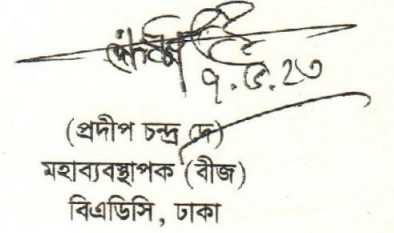 (প্রদীপ চন্দ্র দে)
মহাব্যবস্থাপক (বীজ)
বিএডিসি, ঢাকা